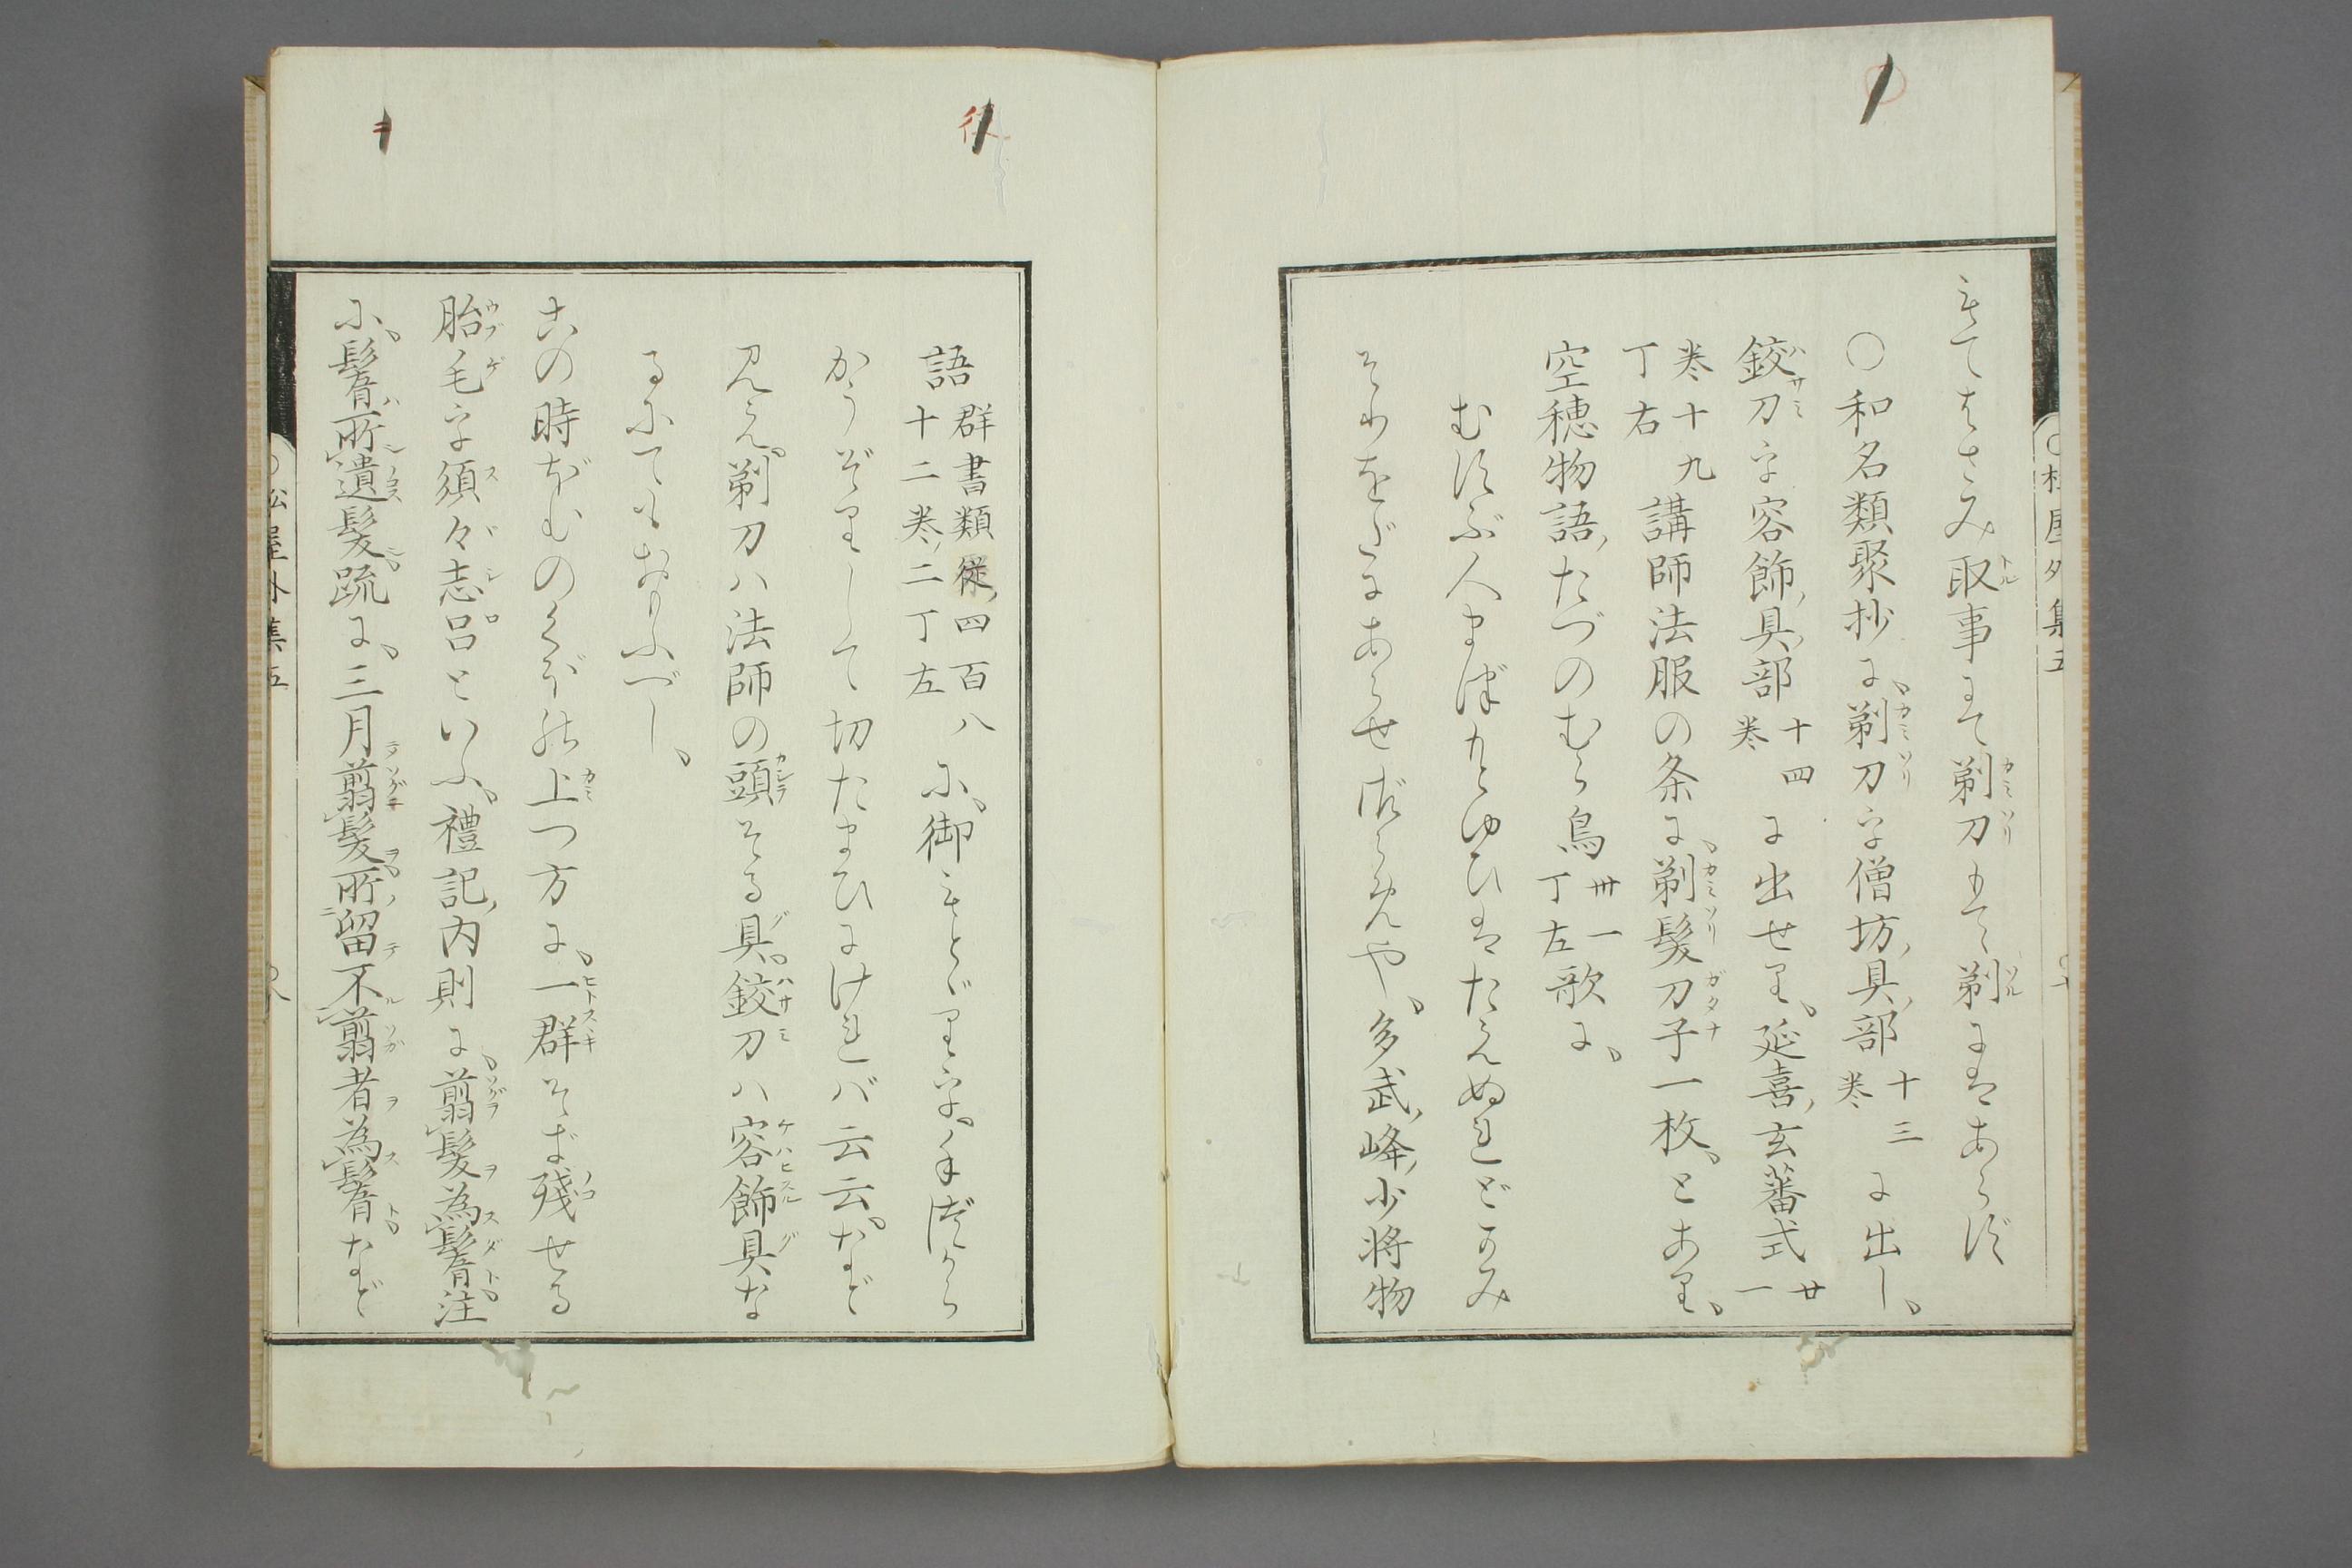 もてはさみ取事にて剃刀もて剃にはあらず
○和名類聚抄に、剃刀を僧坊具部十三巻に出し、
鋏刀を容飾具部十四巻に出せり、延喜玄蕃式廿一
巻十九丁右講師法服の条に、剃髪刀子一枚、とあり、
空穂物語、たづのむら鳥卅一丁左歌に、
むすぶ人まばたゆひはたえぬれどかみ
それをだにあらせざらめや、多武峰少将物
語群書類従四百八十二巻二丁左に、御もとどりを手づから
かうぞりして切たまひにけれバ云云、など
見え、剃刀ハ法師の頭そる具、鋏刀ハ容飾具な
るにてもおもふべし、
古の時
上つ方に、一群そぎ残せる
胎毛を須々志呂といふ、禮記内則に、翦髪為鬌注
に、鬌所遺髪、疏に、三月翦髪所留不翦者為鬌など
松屋外集五